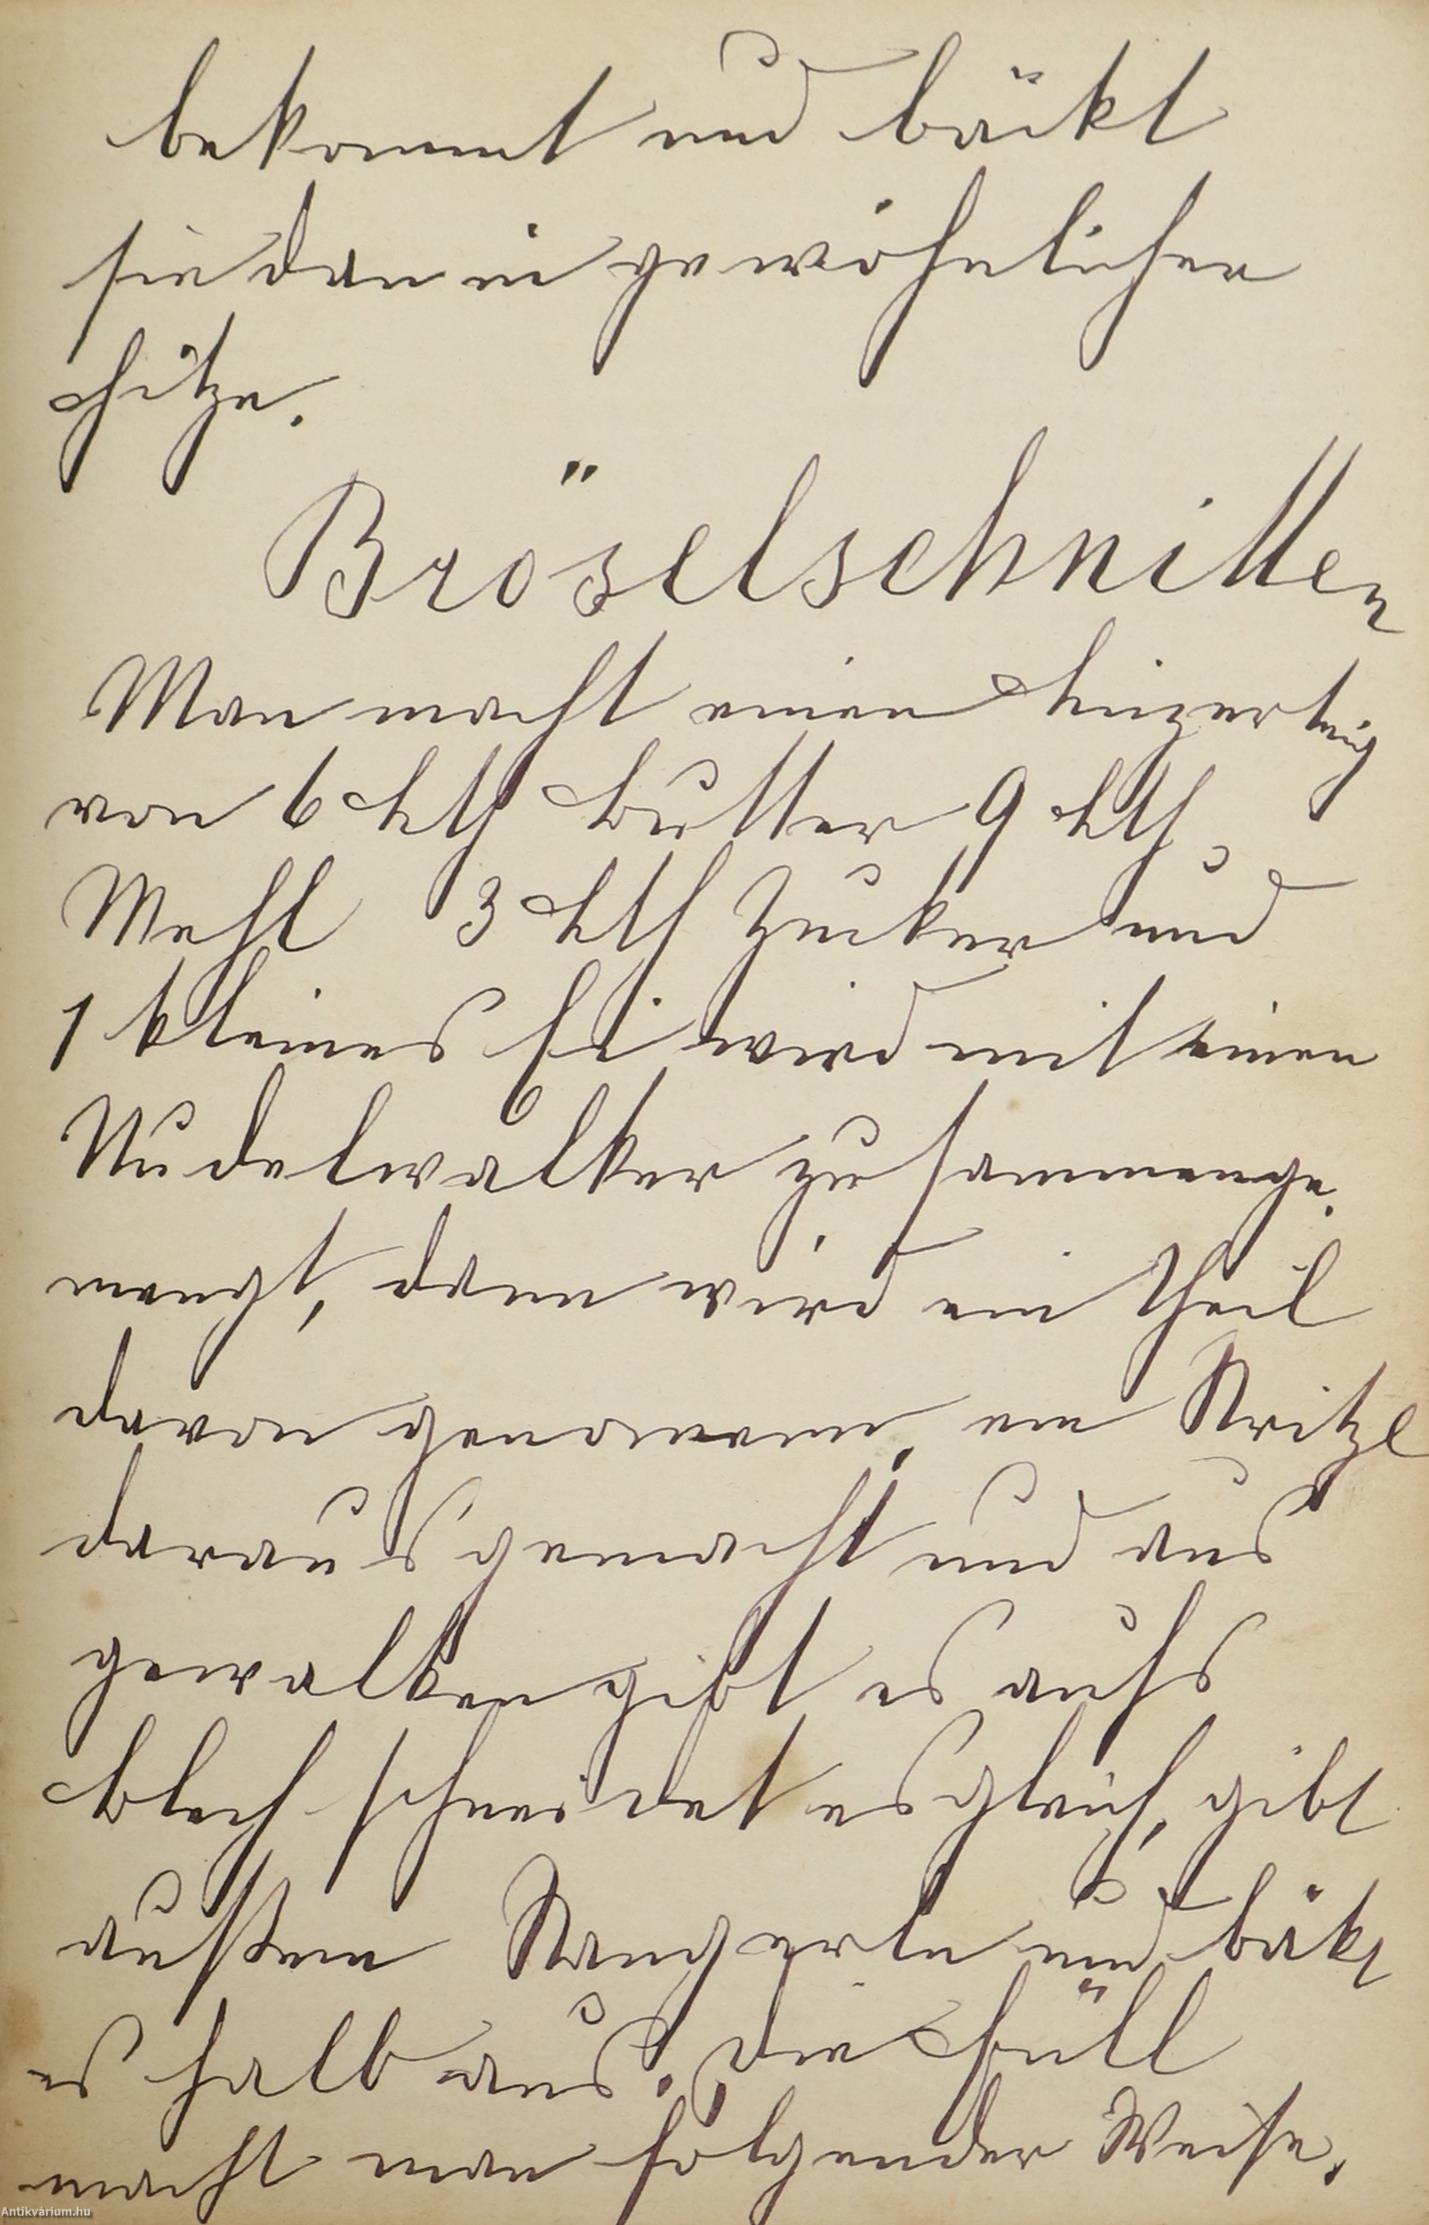 bekommt und bäckt
sie dan in gewöhnlicher
Hitze.
Bröselschnitten
Man macht einen Linzerteig
von 6 Lth Butter 9 Lth
Mehl 3 Lth Zucker und
1 kleines Ei wird mit einen
Nudelwalker zusammenge.
mengt, dann wird ein Theil
davon genommen, ein Stritzl
daraus gemacht und aus
gewalken gibt es aufs
Blech schneidet es gleich, gibt
außen Stangerln und bäkt
es halb aus. Die Füll
macht man folgender Weise.
Antikvárium.hu